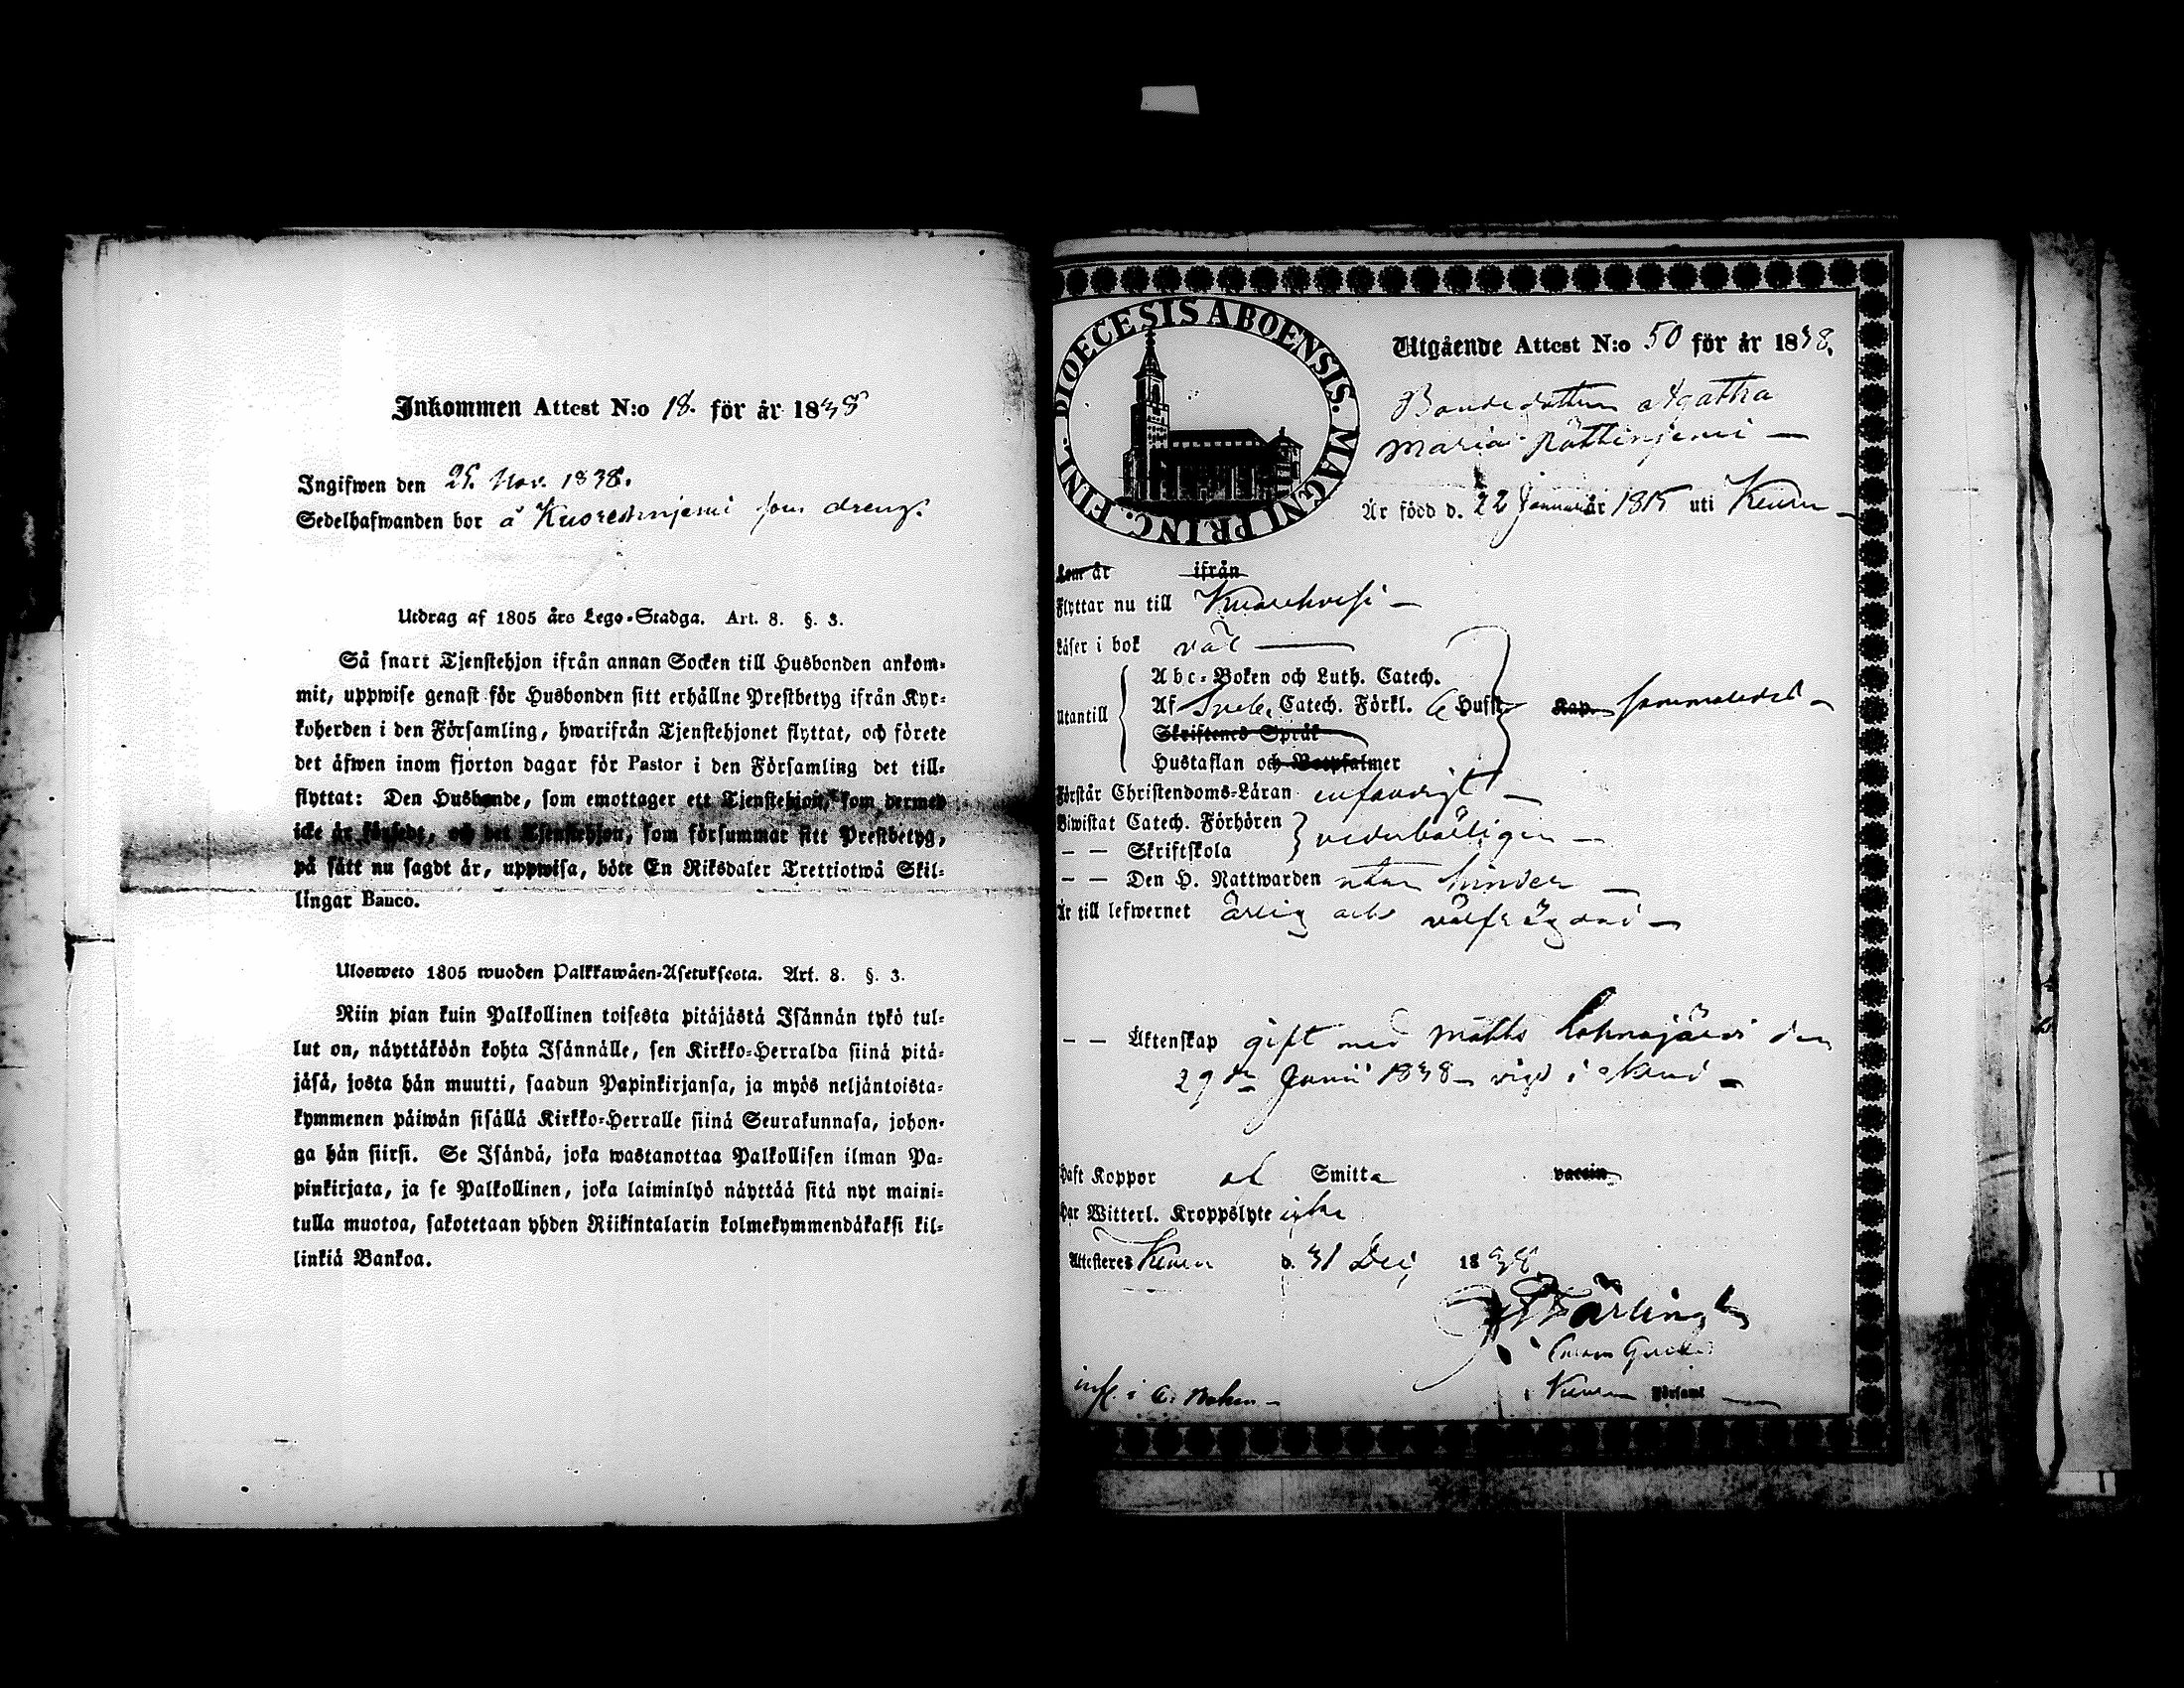 Inkommen Attest N:o 18. för år 1838
Ingifwen den 25. Nov. 1838.
Sedelhafwanden bor å som dreng.
Utdrag af 1805 års Lego-Stadga. Art. 8. §. 3.
Så snart Tjenstehjon ifrån annan Socken till Husbonden ankom-
mit, uppwise genast för Husbonden sitt erhållne Prestbetyg ifrån Kyr-
koherden i den Församling, hwarifrån Tjenstehjonet flyttat, och förete
det äfwen inom fjorton dagar för Pastor i den Församling det till-
flyttat: Den Husbonde, som emottager ett Tjenstehjon, som dermed
icke är försedt, och det Tjenstehjon, som försummar sitt Prestbetyg,
på sätt nu sagdt är, uppwisa, böte En Riksdaler Trettiotwå Skil-
lingar Banco.
Ulosweto 1805 wuoden Palkkawäen-Asetuksesta. Art. 8. §. 3.
Niin pian kuin Palkollinen toisesta pitäjästä Isännän tykö tul-
lut on, näyttäköön kohta Isännälle, sen Kirkko-Herralda siinä pitä-
jäsä, josta hän muutti, saadun Papinkirjansa, ja myös neljäntoista-
kymmenen päiwän sisällä Kirkko-Herralle siinä Seurakunnasa, johon-
ga hän siirsi. Se Isändä, joka wastanottaa Palkollisen ilman Pa-
pinkirjata, ja se Palkollinen, joka laiminlyö näyttää sitä nyt maini-
tulla muotoa, sakotetaan yhden Riikintalarin kolmekymmendäkaksi kil-
linkiä Bankoa.
DIOECESIS ABOENSIS. MAGNI PRINC. FINL.
Utgående Attest N:o 50 för år 1838.
Bondedottren Agatha
Maria
Är född d. 22 Januari år 1815 uti Keuru
Kom år ifrån
Flyttar nu till Kuorehvesi
Läser i bok väl
Abc-Boken och Luth. Catech.
Utantill Af Sveb. Catech. Förkl. 6 Hufst. Kap. sammaledes
Skriftenes Språk
Hustaflan och Botpsalmer
Förstår Christendoms-Läran enfaldigt
Biwistat Catech. Förhören
vederbörligen
— — Skriftskola
— — Den H. Nattwarden utan hinder
Är till lefwernet ärlig och välfrägdad
— — Äktenskap gift med Matts Lahnajärvi den
29de Junii 1838 vigd i
Haft Koppor af Smitta vaccin
Har Witterl. Kroppslyte icke
Attesteras Keuru d. 31 Dec. 1838
i Keuru Församl